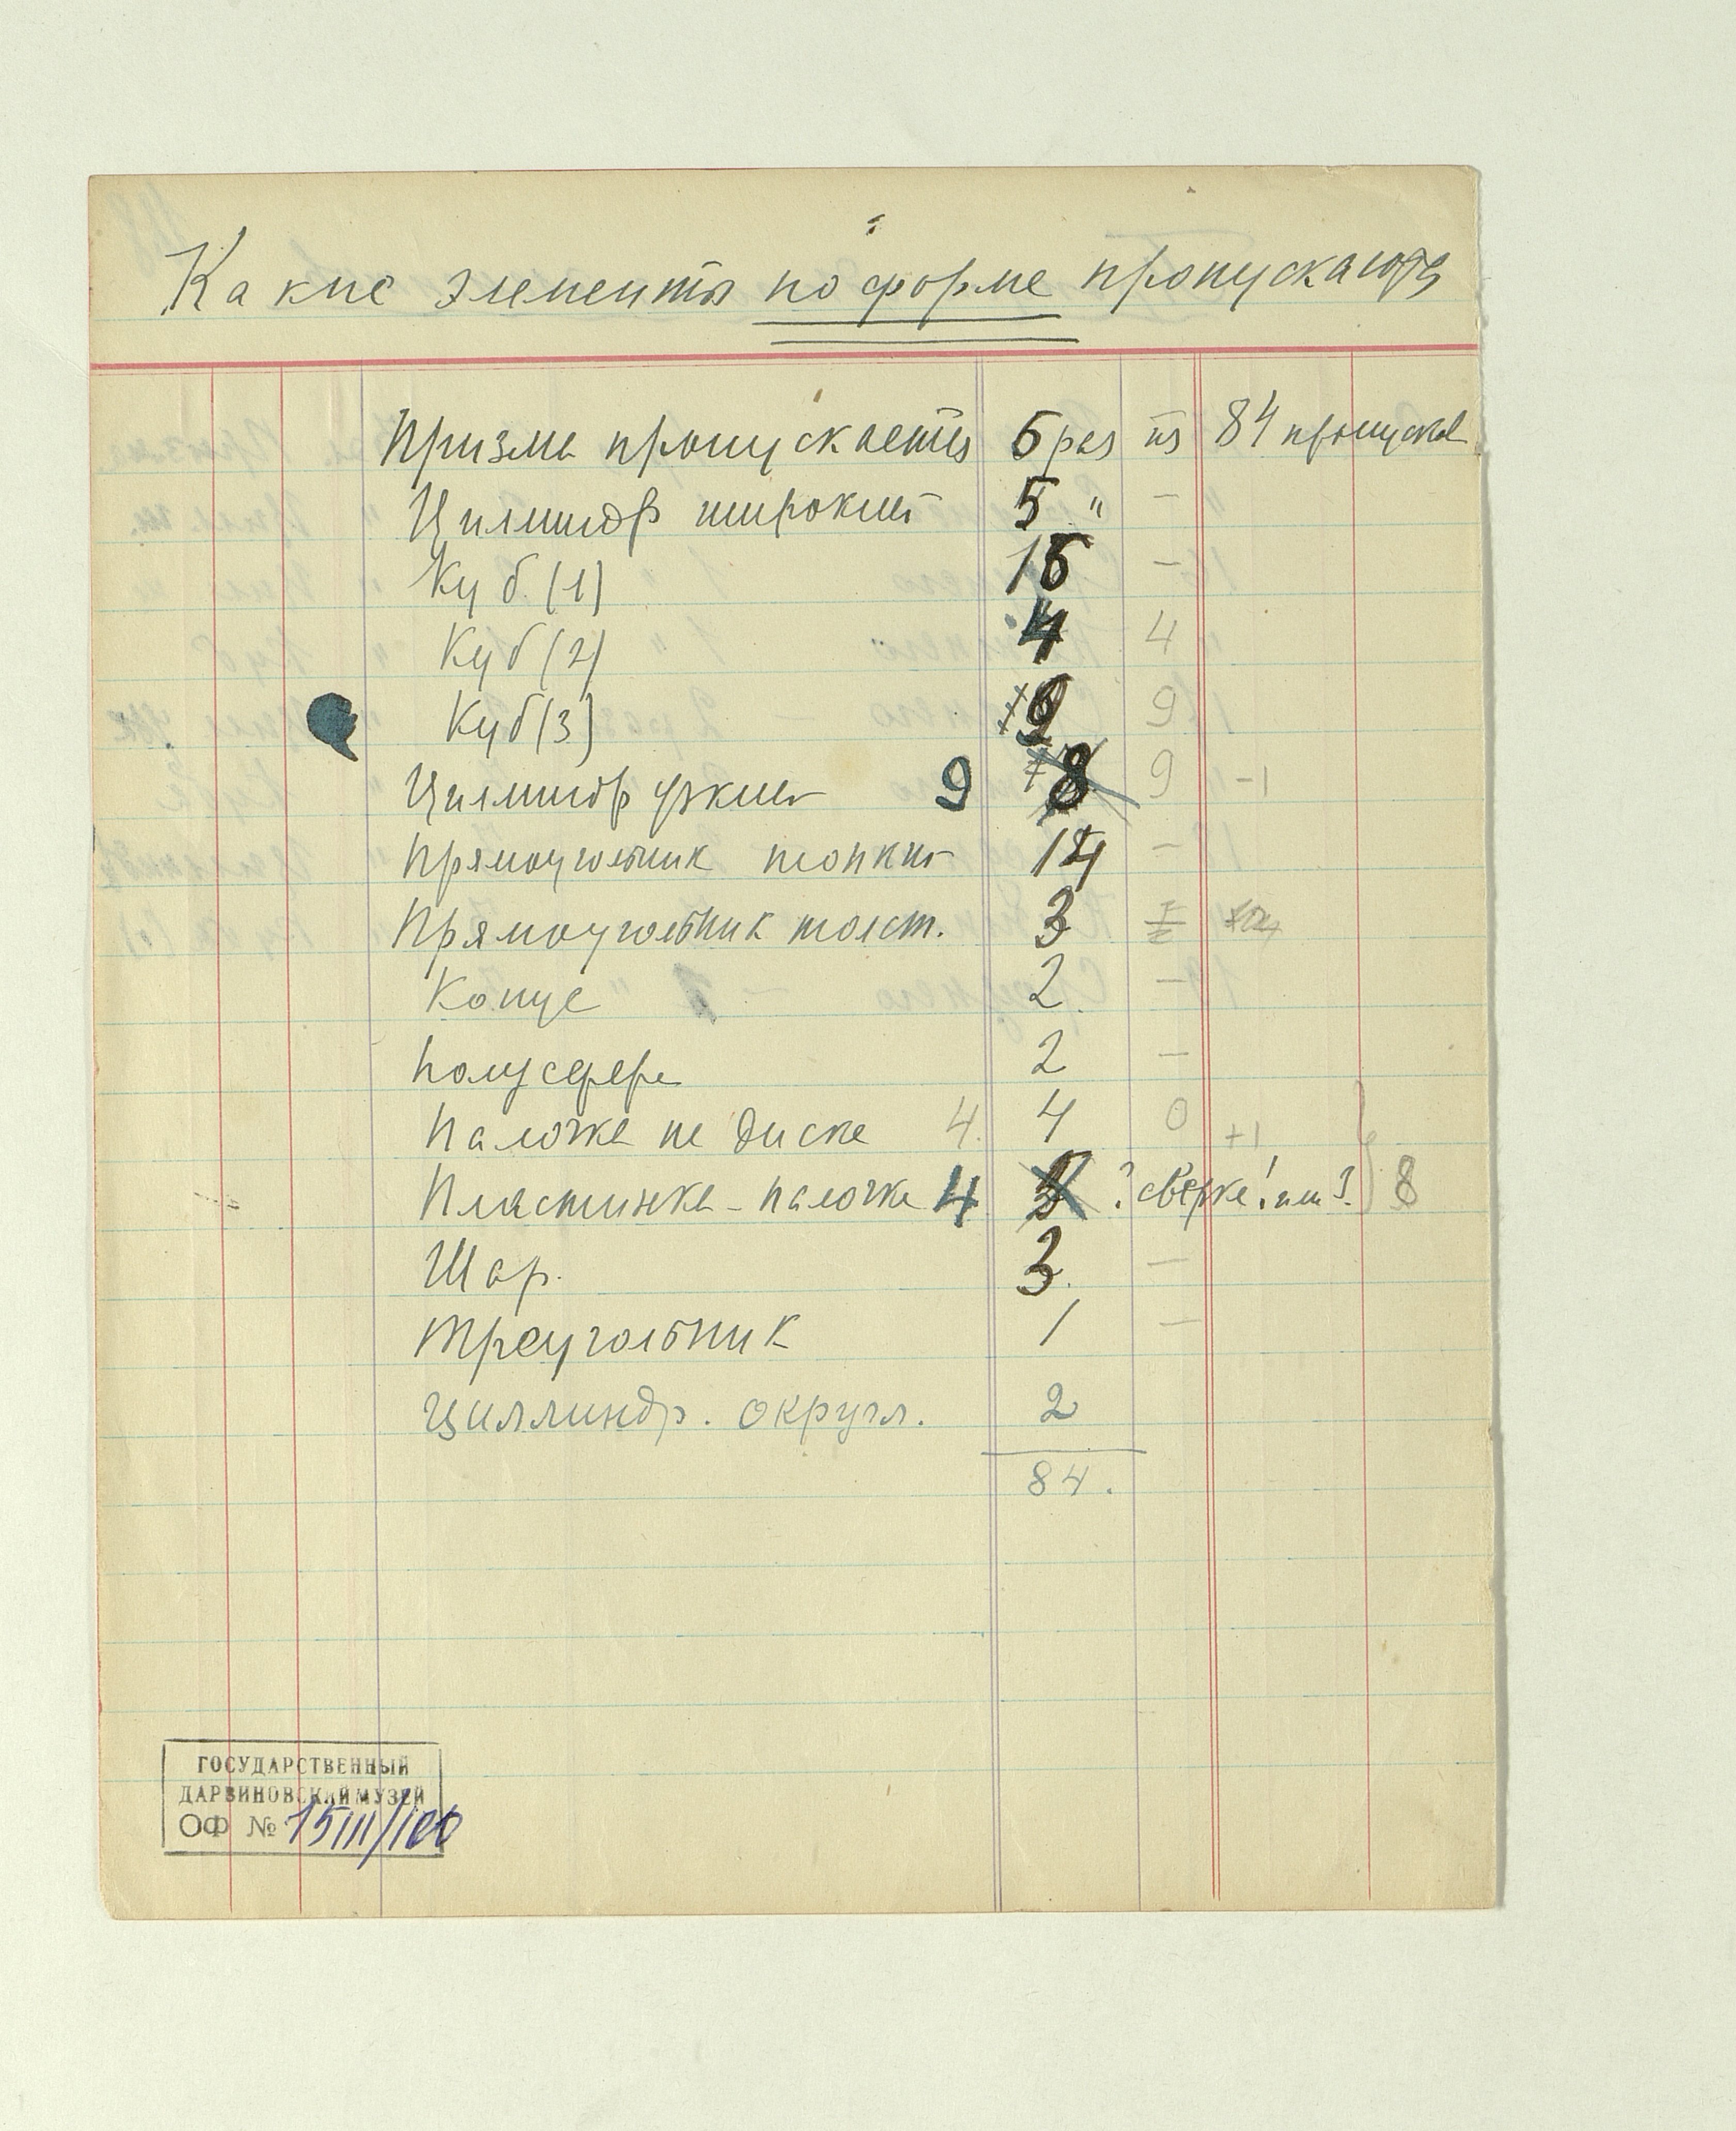 Какие элементы по форме пропускаются
Призма пропускается 6 раз из 84 пропусков
Цилиндр широкий 5 " —
Куб (1) 16 —
Куб (2) 4 4
Куб (3) 9 9
Цилиндр узкий 9 8 9 -1
Прямоугольник тонкий 14 —
Прямоугольник толст. 3
Конус 2 —
Полусфера 2 —
Палочка на диске 4. 4 0 +1
Пластинка - палочка 4 ? сверка! 8
Шар. 3. —
Треугольник 1 —
Циллиндр. округл. 2
84.
ГОСУДАРСТВЕННЫЙ
ДАРВИНОВСКИЙ МУЗЕЙ
ОФ № 15111/100